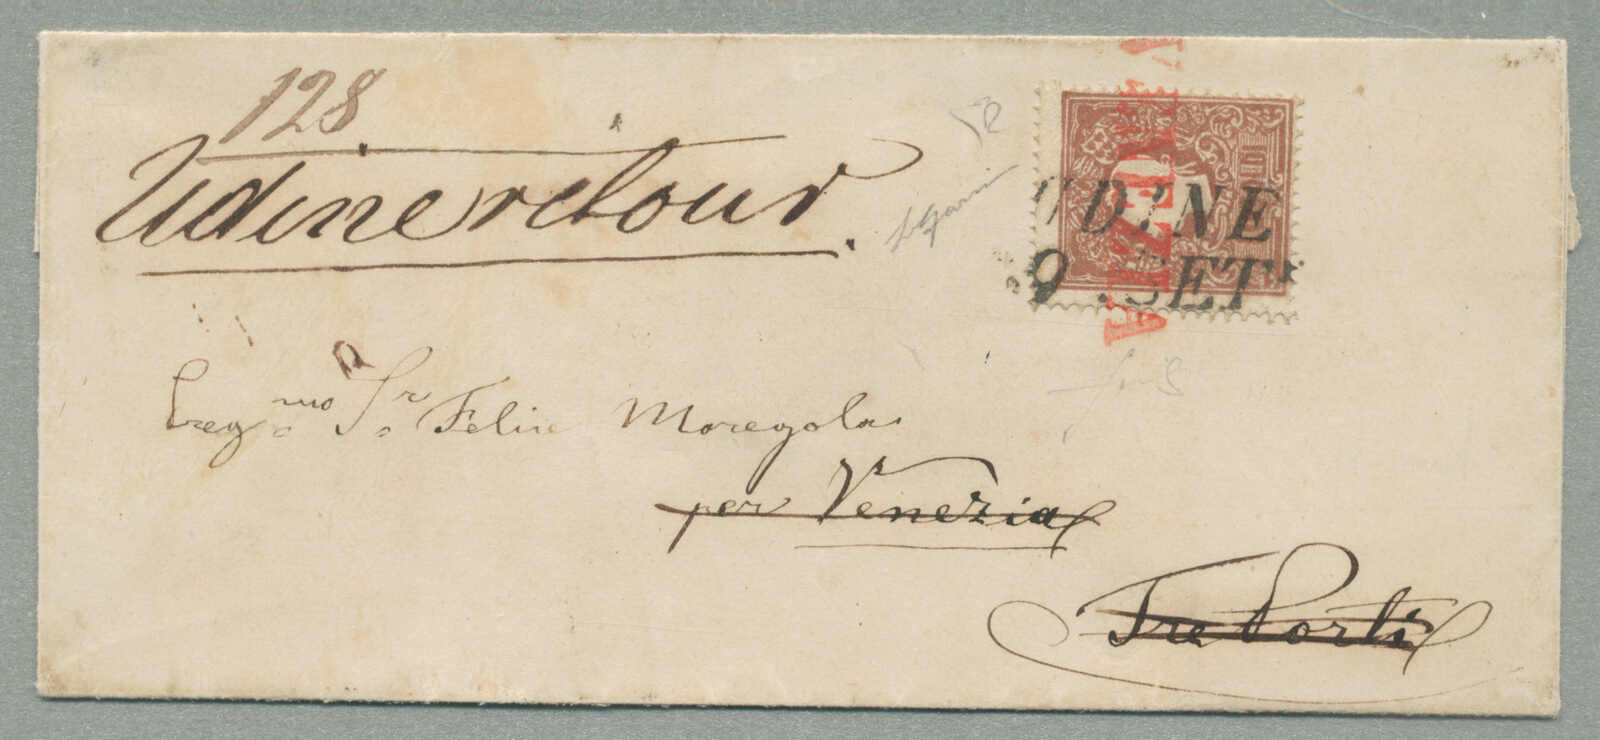 128
Udine retour.
UDINE
9 . SET
Preg.mo Sr. Felice Moregola
per Venezia
Tre Porti